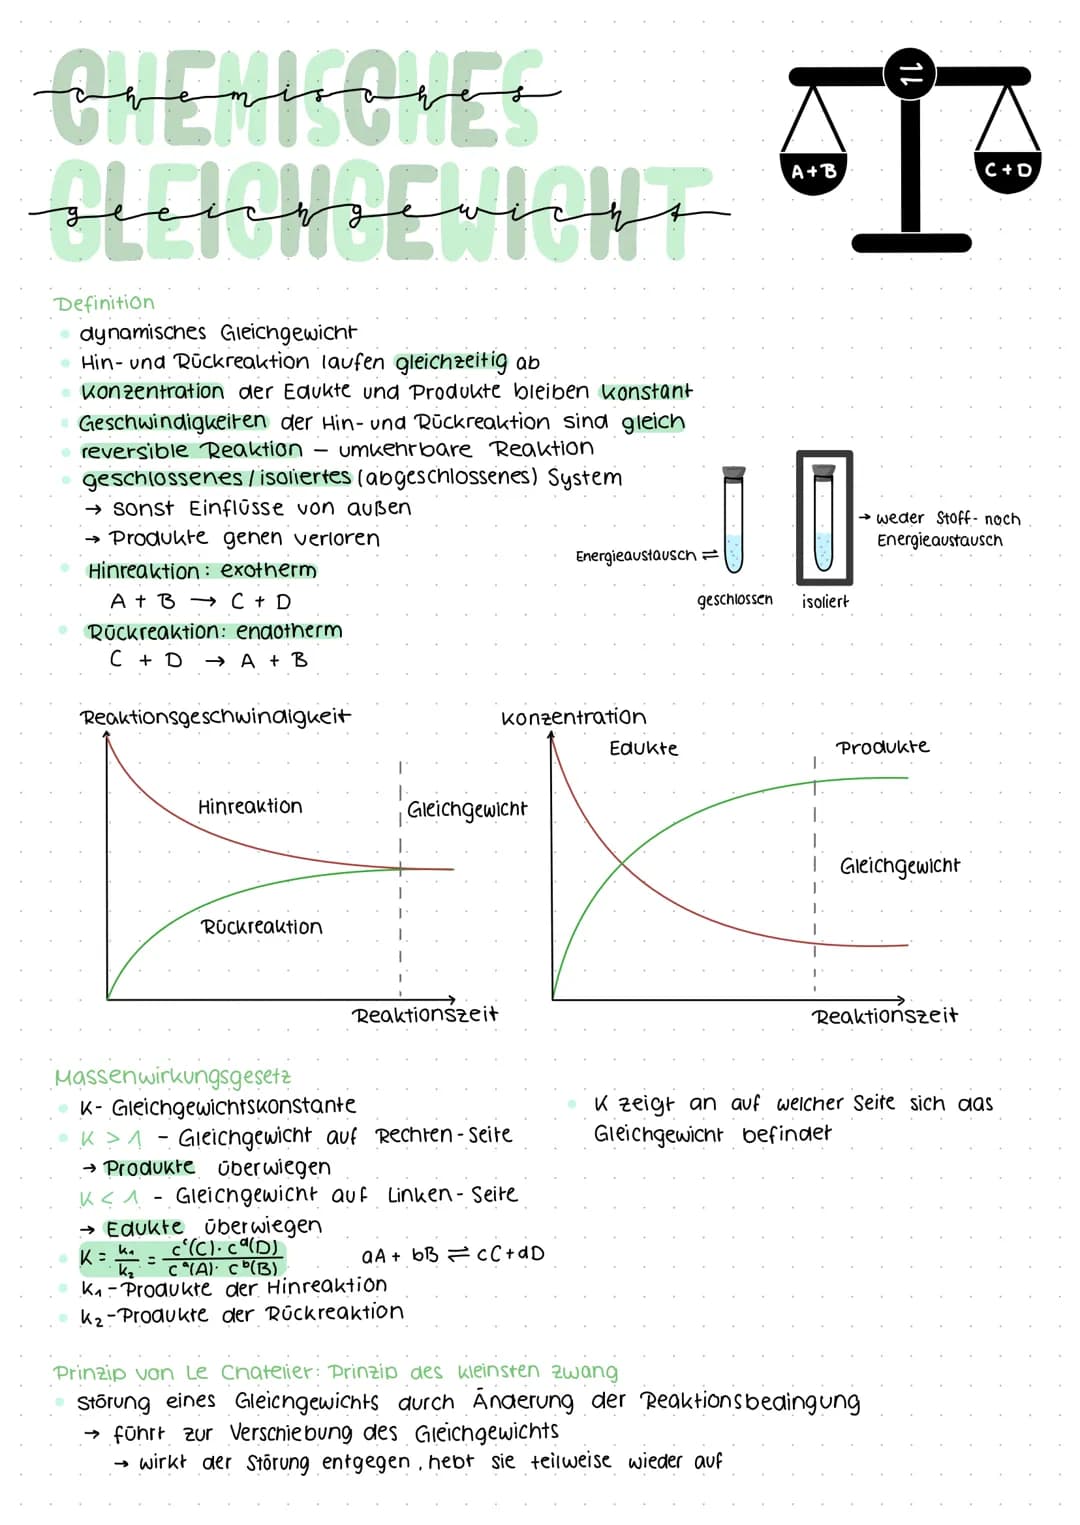 CHEMISCHES
chemisches
GLEICHGEWICHT
gleichgewicht
A+B
C+D
Definition
dynamisches Gleichgewicht
Hin- und Rückreaktion laufen gleichzeitig ab
Konzentration der Edukte und Produkte bleiben konstant
Geschwindigkeiten der Hin- und Rückreaktion sind gleich
reversible Reaktion – umkehrbare Reaktion
geschlossenes/isoliertes (abgeschlossenes) System
→ sonst Einflüsse von außen
→ Produkte genen verloren
Energieaustausch ⇌
→ weder Stoff- noch
Energieaustausch
geschlossen
isoliert
Hinreaktion: exotherm
A + B → C + D
Rückreaktion: endotherm
C + D → A + B
Reaktionsgeschwindigkeit
Hinreaktion
Gleichgewicht
Rückreaktion
Reaktionszeit
Konzentration
Edukte
Produkte
Gleichgewicht
Reaktionszeit
Massenwirkungsgesetz
K- Gleichgewichtskonstante
K > 1 - Gleichgewicht auf Rechten-Seite
→ Produkte überwiegen
K < 1 - Gleichgewicht auf Linken-Seite
→ Edukte überwiegen
K = k₁/k₂ = c^c(C)·c^d(D) / c^a(A)·c^b(B)
aA + bB ⇌ cC+dD
k₁-Produkte der Hinreaktion
k₂-Produkte der Rückreaktion
K zeigt an auf welcher Seite sich das
Gleichgewicht befindet
Prinzip von Le Chatelier: Prinzip des kleinsten zwang
Störung eines Gleichgewichts durch Änderung der Reaktionsbedingung
→ führt zur Verschiebung des Gleichgewichts
→ wirkt der Störung entgegen, hebt sie teilweise wieder auf